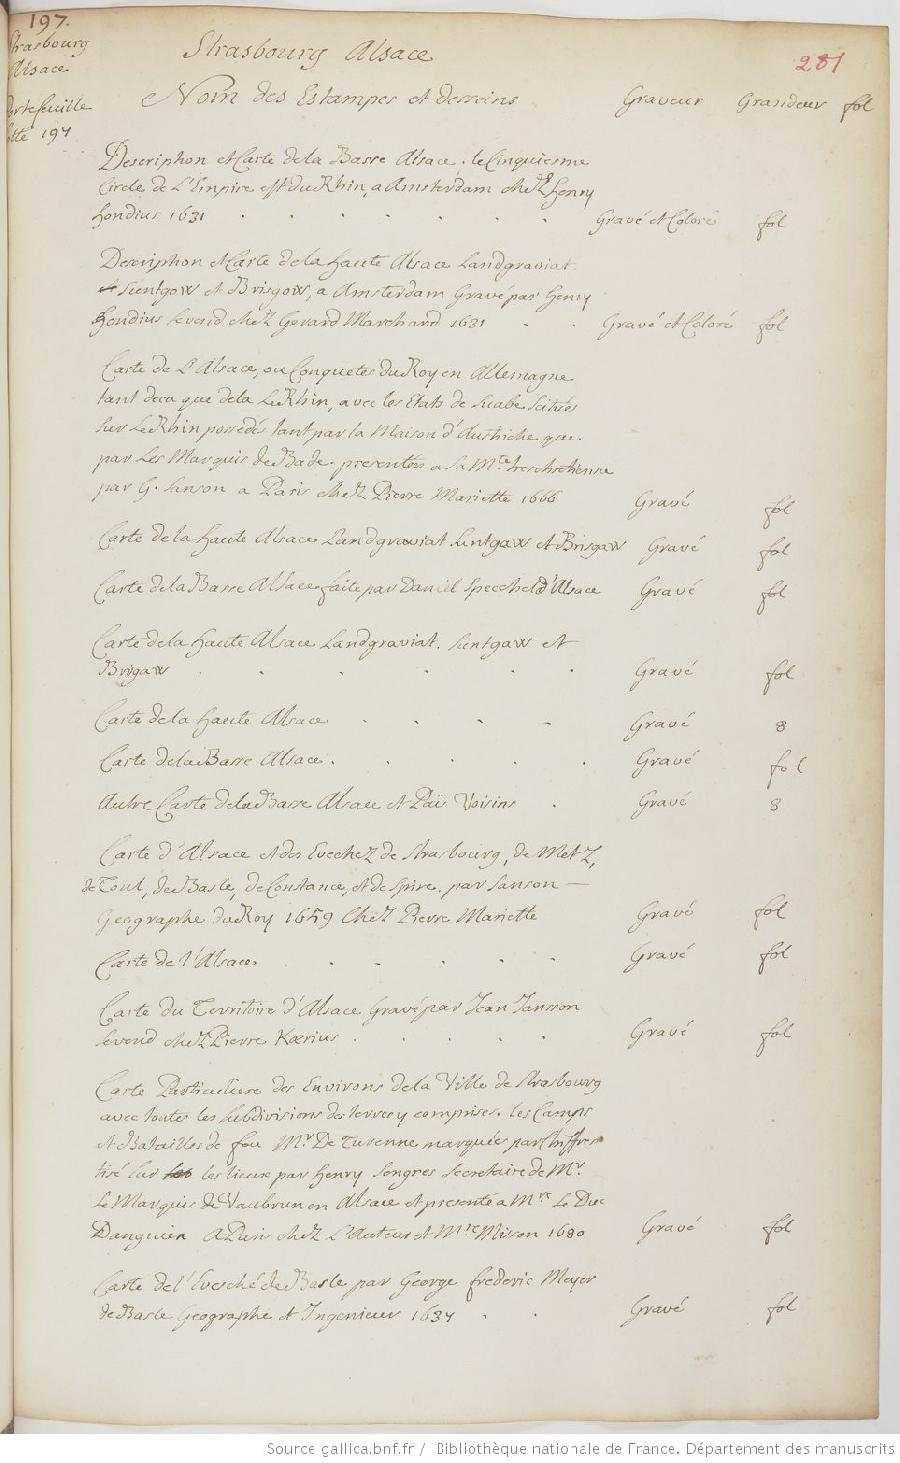 197.
Strasbourg
Alsace
Portefeuille
cotté 197
Strasbourg Alsace
281
Nom des Estampes et desseins Graveur Grandeur fol
Description et Carte de la Basse Alsace. le Cinquiesme
Circle de L'Empire est du Rhin, a Amsterdam chez Henry
hondius 1631 . . . . . . . Gravé et Coloré fol
Description et Carte de la haute Alsace Landgraviat
Suentgow et Brisgow, a Amsterdam Gravé par Henry
Hondius se vend chez Gerard Marchard 1631 . . Gravé et Coloré fol
Carte de L'Alsace, ou Conquetes du Roy en Allemagne
tant deca que dela Le Rhin, avec les Etats de Suabe Scitués
sur Le Rhin possedés tant par la Maison d'Austriche que.
par Les Marquis de Bade. presentés a sa Mté treschretienne
par G. Sanson a Paris chez Pierre Mariette 1666 Gravé fol
Carte de la haute Alsace Landgraviat Suntgaw et Brisgaw Gravé fol
Carte de la Basse Alsace faite par Daniel Speeckel d'Alsace Gravé fol
Carte de la haute Alsace Landgraviat. Suntgaw et
Brisgaw . . . . . . Gravé fol
Carte de la haute Alsace . . . . Gravé 8
Carte de la Basse Alsace . . . . . Gravé fol
Autre Carte de la Basse Alsace et Païs Voisins . Gravé 8
Carte d'Alsace et des Evechez de Strasbourg, de Metz,
de Toul, de Basle, de Constance, et de Spire. par Sanson —
Geographe du Roy 1659 Chez Pierre Mariette Gravé fol
Carte de l'Alsace . . . . . Gravé fol
Carte du Territoire d'Alsace Gravé par Jean Janson
se vend chez Pierre Kærius . . . . . Gravé fol
Carte Particuliere des Environs de la Ville de Strasbourg
avec toutes les Subdivisions des terres y comprises. les Camps
et Batailles de feu Mr. De Turenne marquées par Chiffres
tiré sur les lieux par Henry Sengres Secretaire de Mr.
Le Marquis de Vaubrun en Alsace et presenté a Mr. Le Duc
Danguien A Paris chez L'Auteur et Mre Miron 1680 Gravé fol
Carte de l'Evesché de Basle par George frederic Meyer
de Basle Geographe et Ingenieur 1637 . . Gravé fol
Source gallica.bnf.fr / Bibliothèque nationale de France. Département des manuscrits